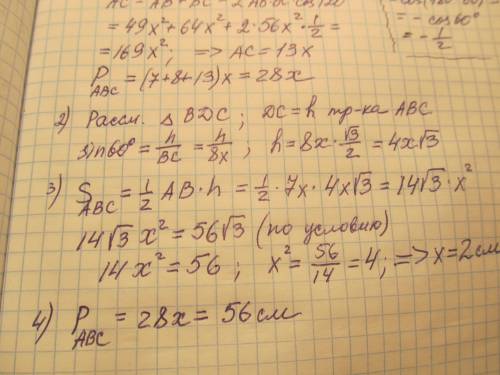 AC² = AB² + BC² - 2AB·BC cos120°
= 49x² + 64x² + 2·56x²·1/2 =
= 169x²; => AC = 13x
P_ABC = (7+8+13)x = 28x
= - cos60°
= - 1/2
2) Рассм. △ BDC; DC = h тр-ка ABC
sin60° = h/BC = h/8x; h = 8x·√3/2 = 4x√3
3) S_ABC = 1/2 AB·h = 1/2·7x·4x√3 = 14√3·x²
14√3 x² = 56√3 (по условию)
14x² = 56; x² = 56/14 = 4; => x = 2см
4) P_ABC = 28x = 56см